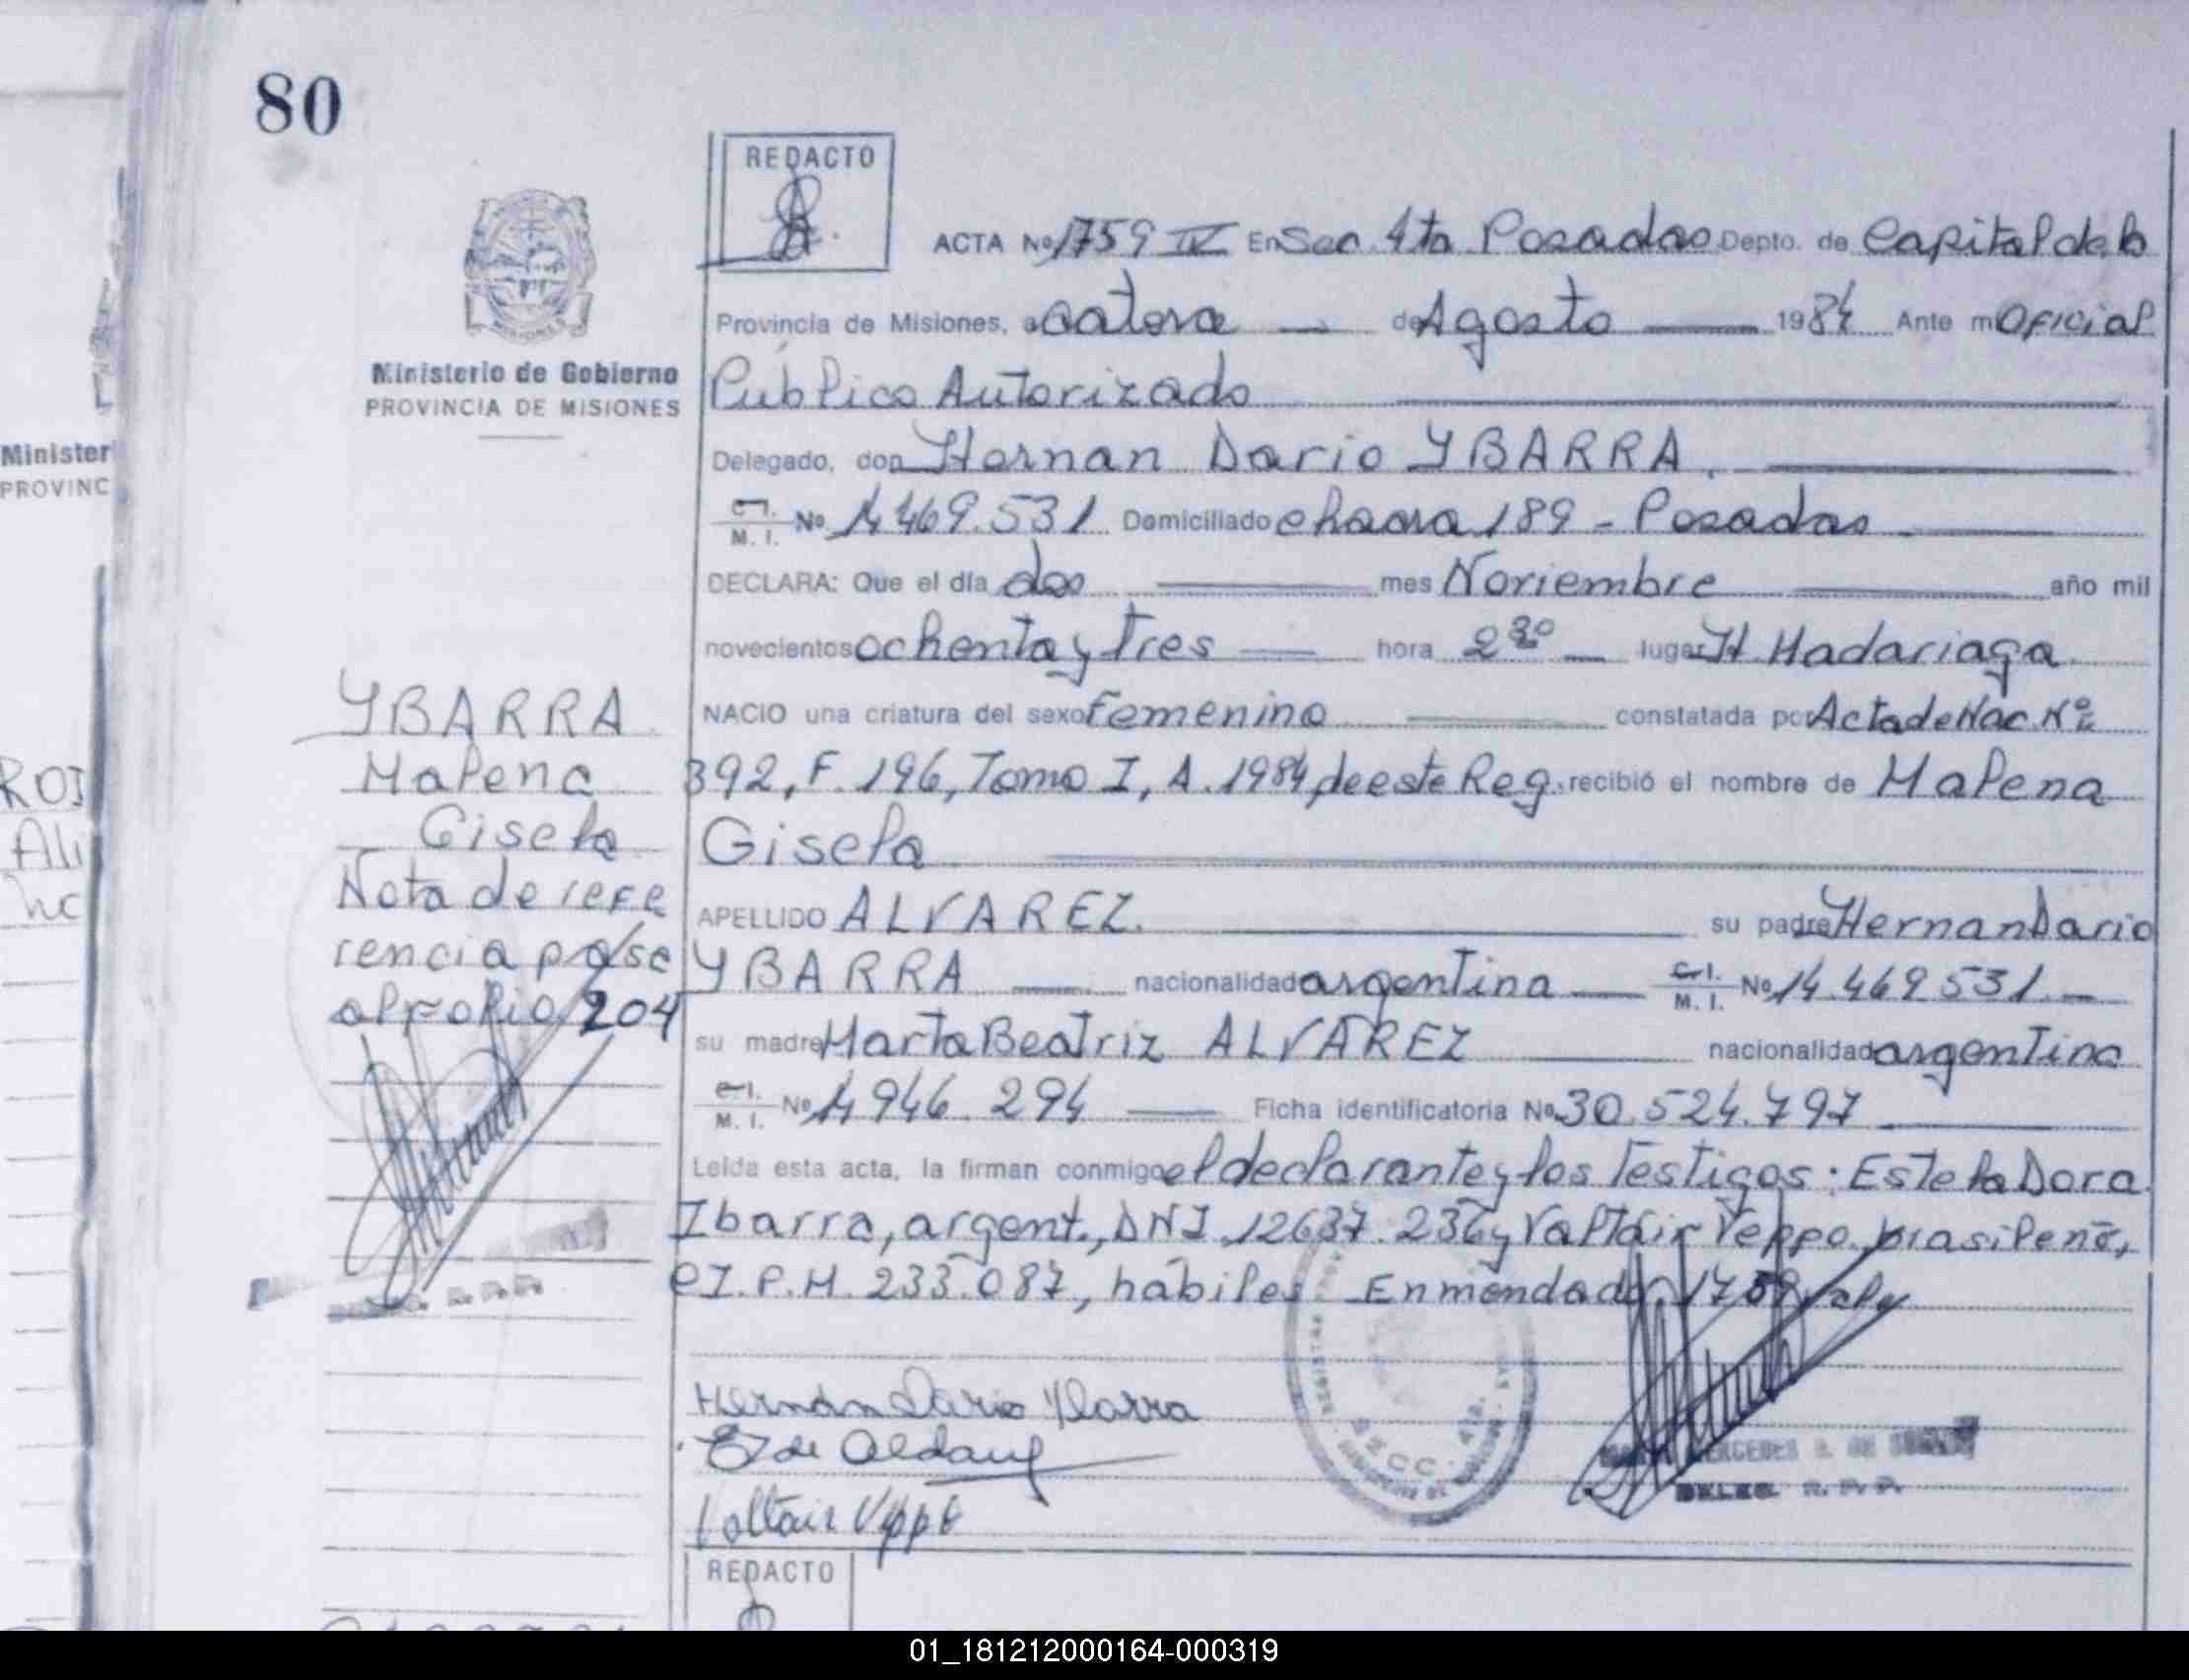 80
REDACTO
ACTA Nº 1759 IV En Sec. 4ta Posadas Depto. de Capital de la
Provincia de Misiones, a catorce de Agosto 1984 Ante mi Oficial
Público Autorizado
Ministerio de Gobierno
PROVINCIA DE MISIONES
Delegado, don Hernan Dario YBARRA.
C.I. M. I. Nº 14 469.531 Domiciliado chacra 189 - Posadas
DECLARA: Que el día dos mes Noviembre año mil
novecientos ochenta y tres hora 2 30 lugar H. Madariaga
NACIO una criatura del sexo femenino constatada por Acta de Nac. Nº
392, F. 196, Tomo I, A. 1984 de este Reg. recibió el nombre de Malena
Gisela
APELLIDO ALVAREZ. su padre Hernan Dario
YBARRA nacionalidad argentina C.I. M. I. Nº 14.469 531.
su madre Marta Beatriz ALVAREZ nacionalidad argentina
C.I. M. I. Nº 14 946. 294 Ficha identificatoria Nº 30.524.797
Leída esta acta, la firman conmigo el declarante y los Testigos: Estela Dora
Ibarra, argent., DNI 12637.236 y Valtair Veppo, brasileño,
CI. P.M. 233.087, hábiles Enmendado, 1759 vale
YBARRA
Malena
Gisela
Nota de refe
rencia pase
al folio 204
Hernán Dario Ybarra
Valtair Veppo
SECC. 4ta.
MERCEDES
DELEG. R. P. P.
REDACTO
Minister
PROVINC
ROJ
Ali
01_181212000164-000319